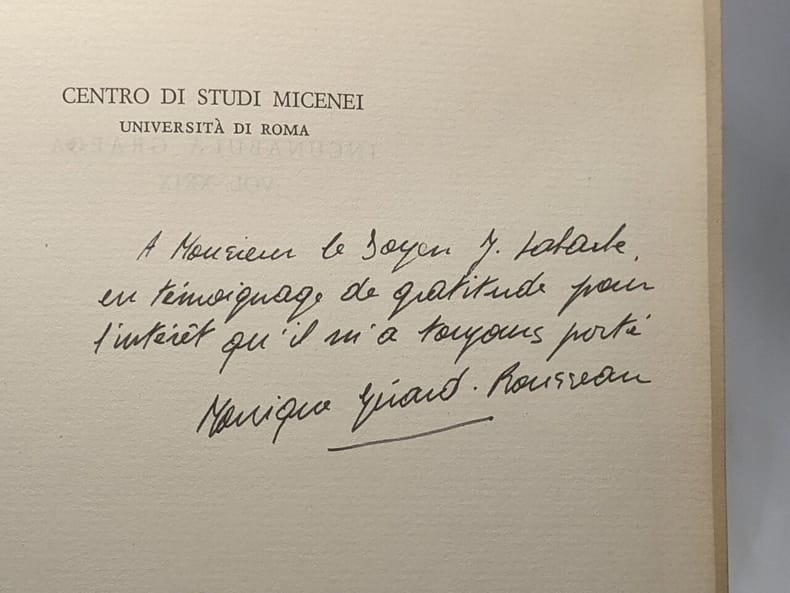 CENTRO DI STUDI MICENEI
UNIVERSITÀ DI ROMA
INCUNABULA GRAECA
VOL. XXIX
A Monsieur le Doyen J. Labarbe,
en témoignage de gratitude pour
l'intérêt qu'il m'a toujours porté
Monique Gérard-Rousseau